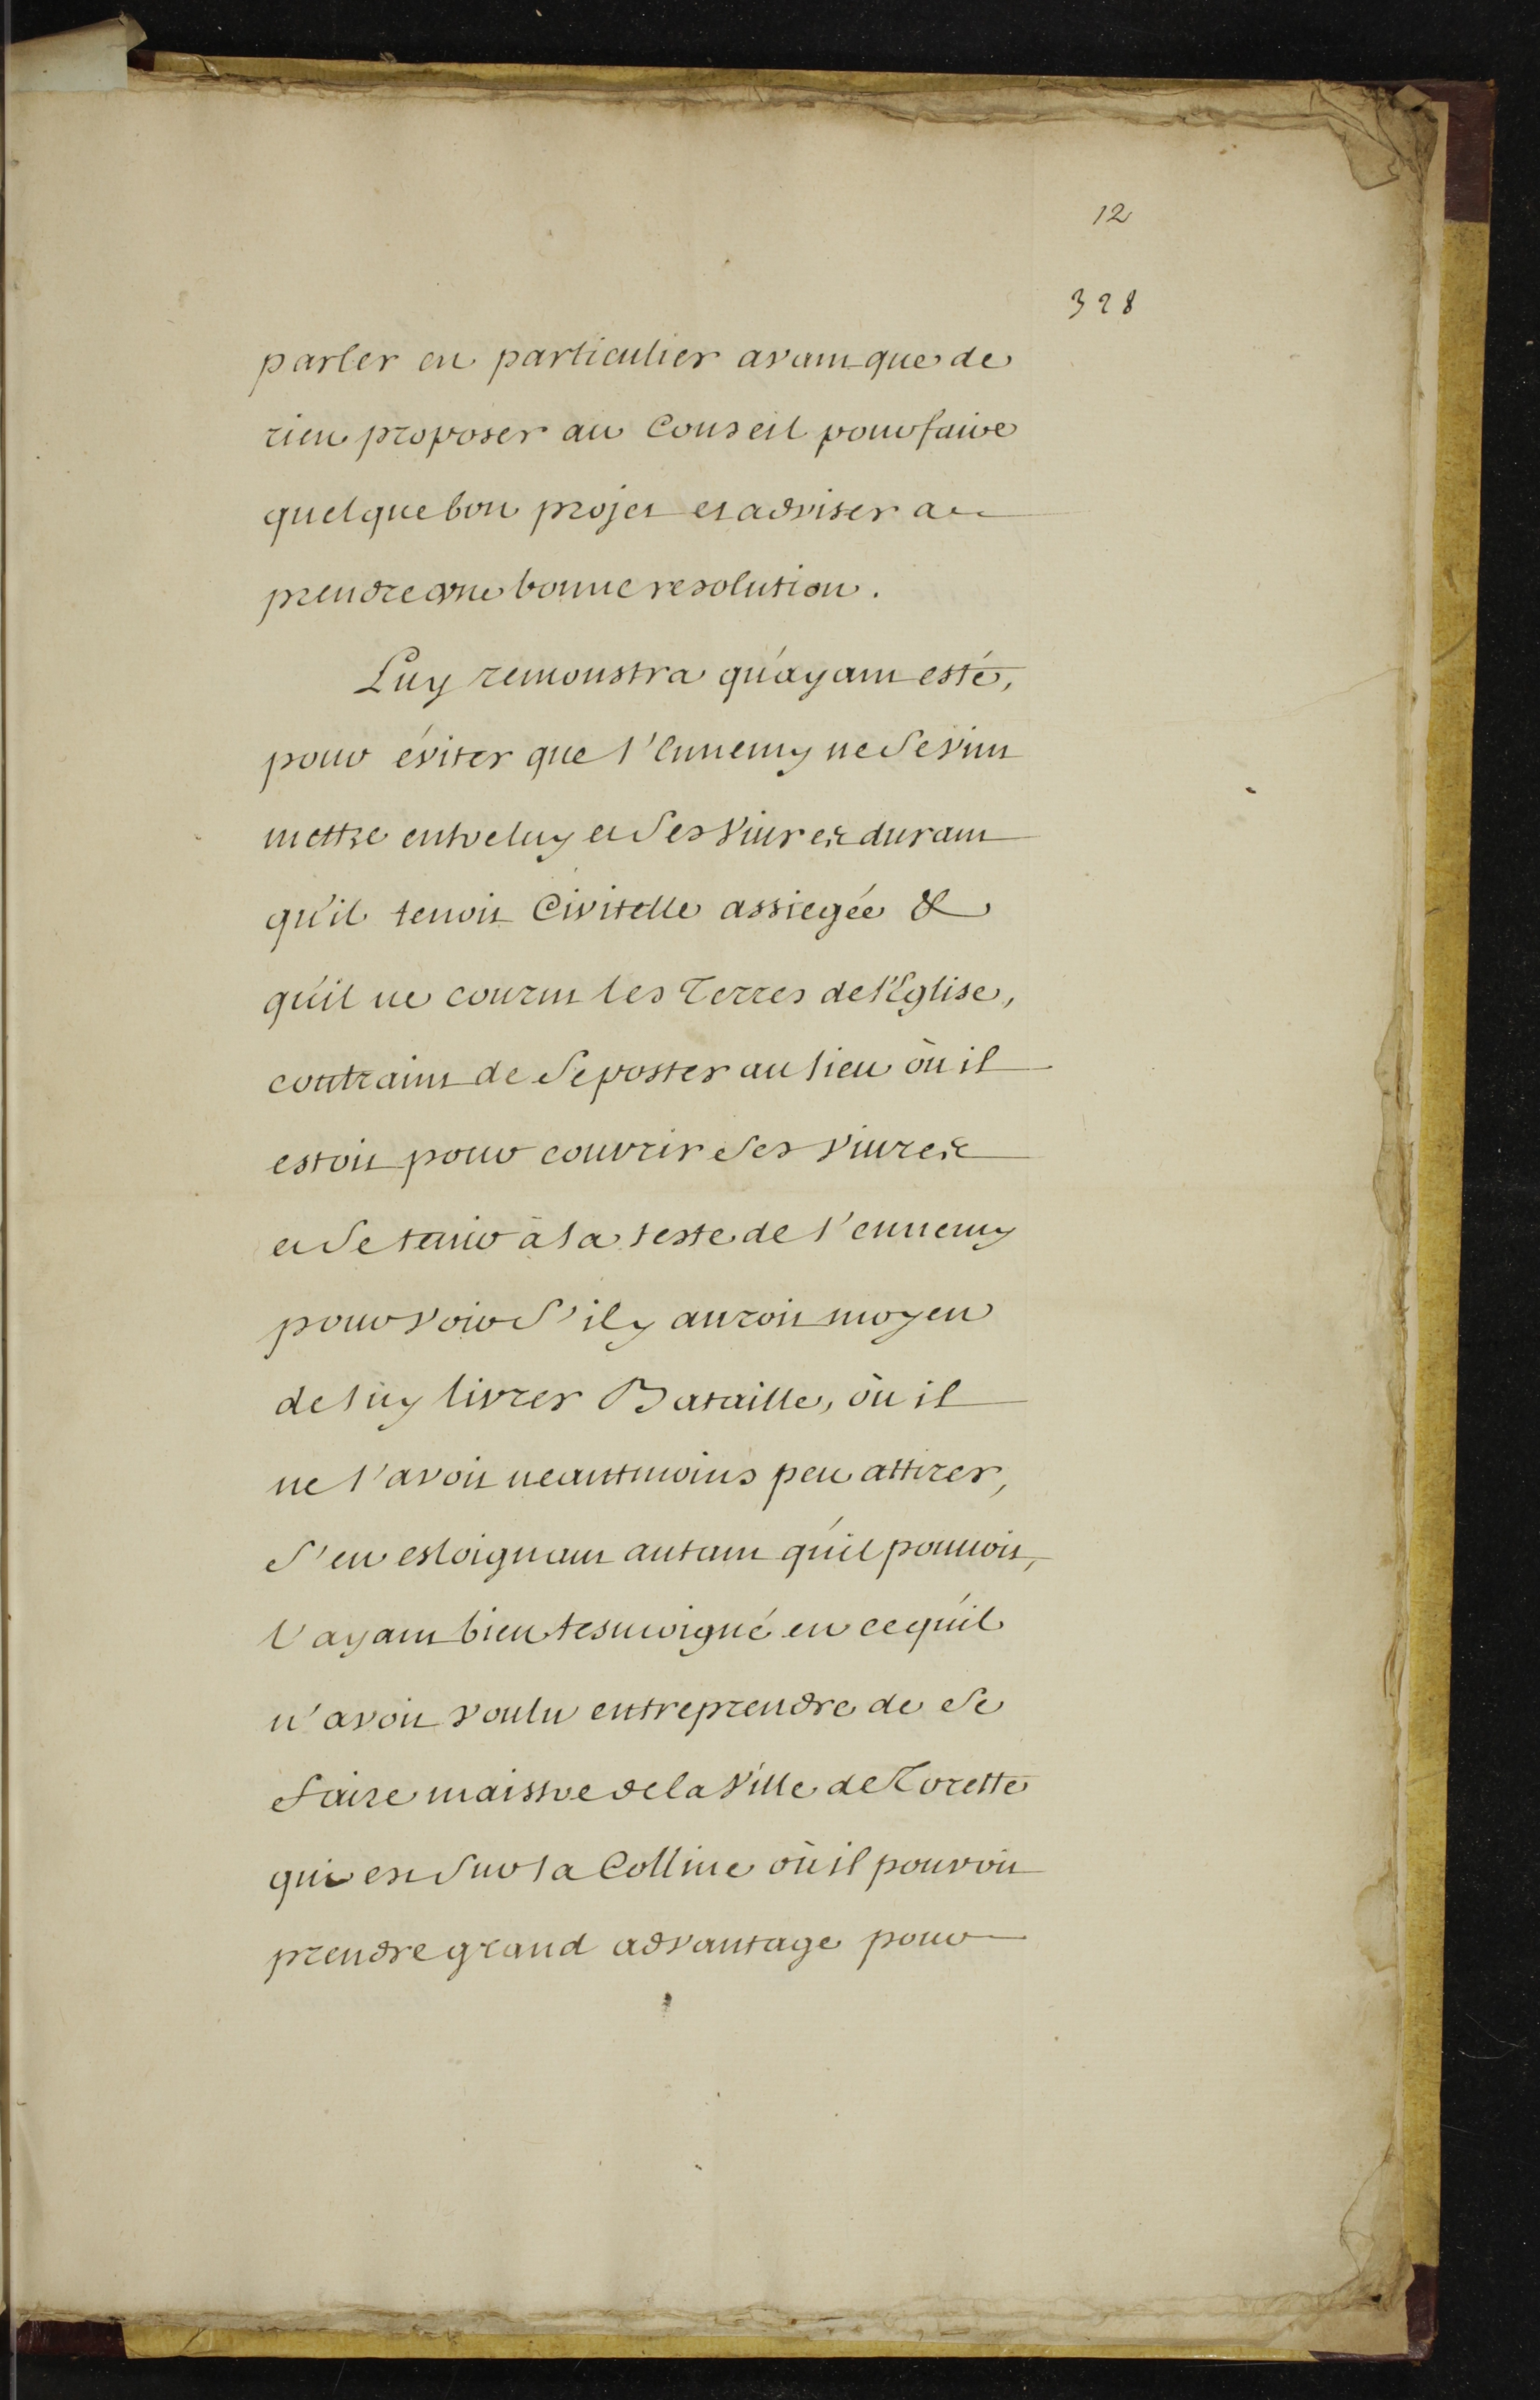 12
328
parler en particulier avant que de
rien proposer au Conseil pour faire
quelque bon projet et adviser a
prendre une bonne resolution.
Luy remonstra qu'ayant esté,
pour éviter que l'Ennemy ne se vint
mettre entre luy et ses vivres durant
qu'il tenoit Civitelle assiegée &
qu'il ne courut les Terres de l'Eglise,
contraint de se poster au lieu où il
estoit pour couvrir ses vivres
et se tenir à la teste de l'ennemy
pour voir s'il y auroit moyen
de luy livrer Bataille, où il
ne l'avoit neantmoins peu attirer,
s'en esloignant autant qu'il pouuoit,
l'ayant bien tesmoigné en ce qu'il
n'avoit voulu entreprendre de se
faire maistre de la Ville de Torette
qui est sur la Colline où il pouvoit
prendre grand advantage pour